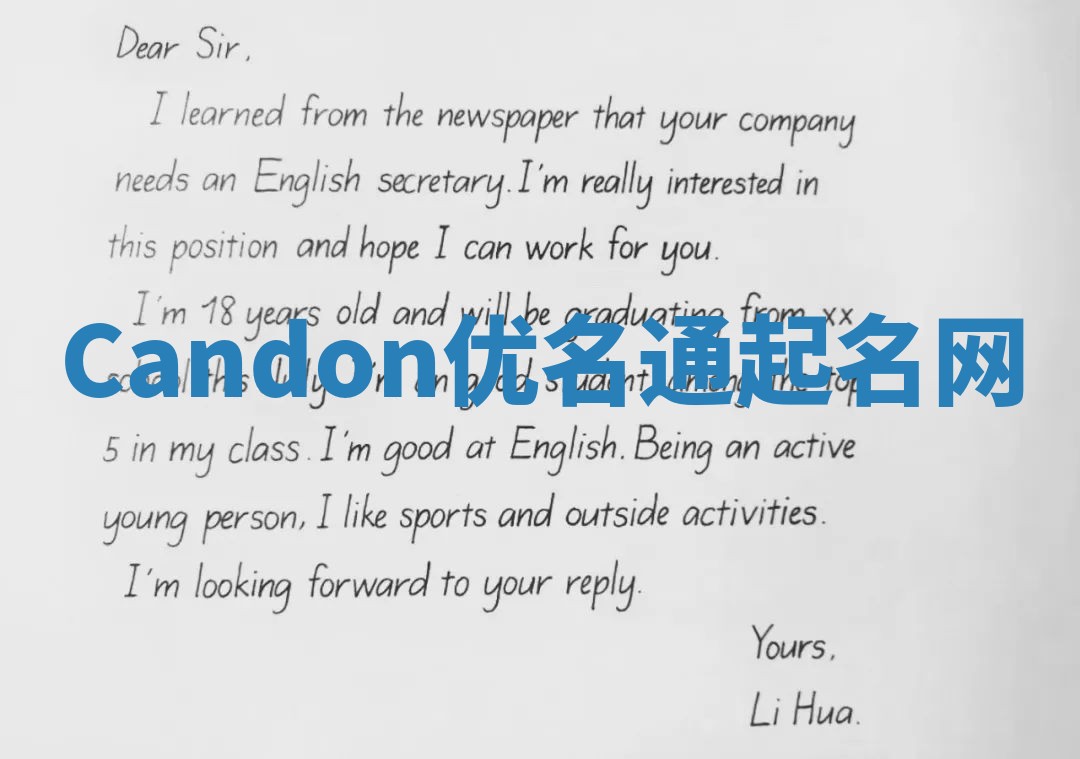 Dear Sir,
I learned from the newspaper that your company
needs an English secretary. I'm really interested in
this position and hope I can work for you.
I'm 18 years old and will be graduating from xx
Candon优名通起名网
school this July. I'm an good student among the top
5 in my class. I'm good at English. Being an active
young person, I like sports and outside activities.
I'm looking forward to your reply.
Yours,
Li Hua.